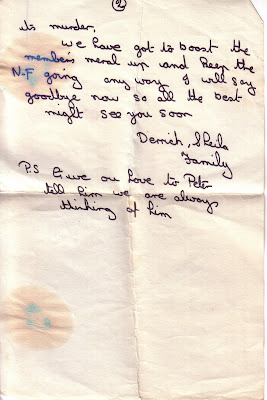 (2)
its murder,
we have got to boost the
members meral up and keep the
N-F going any way I will say
goodbye now so all the best
might see you soon
Derrick, Sheila
Family
P.S Give our love to Peter
tell him we are always
thinking of him